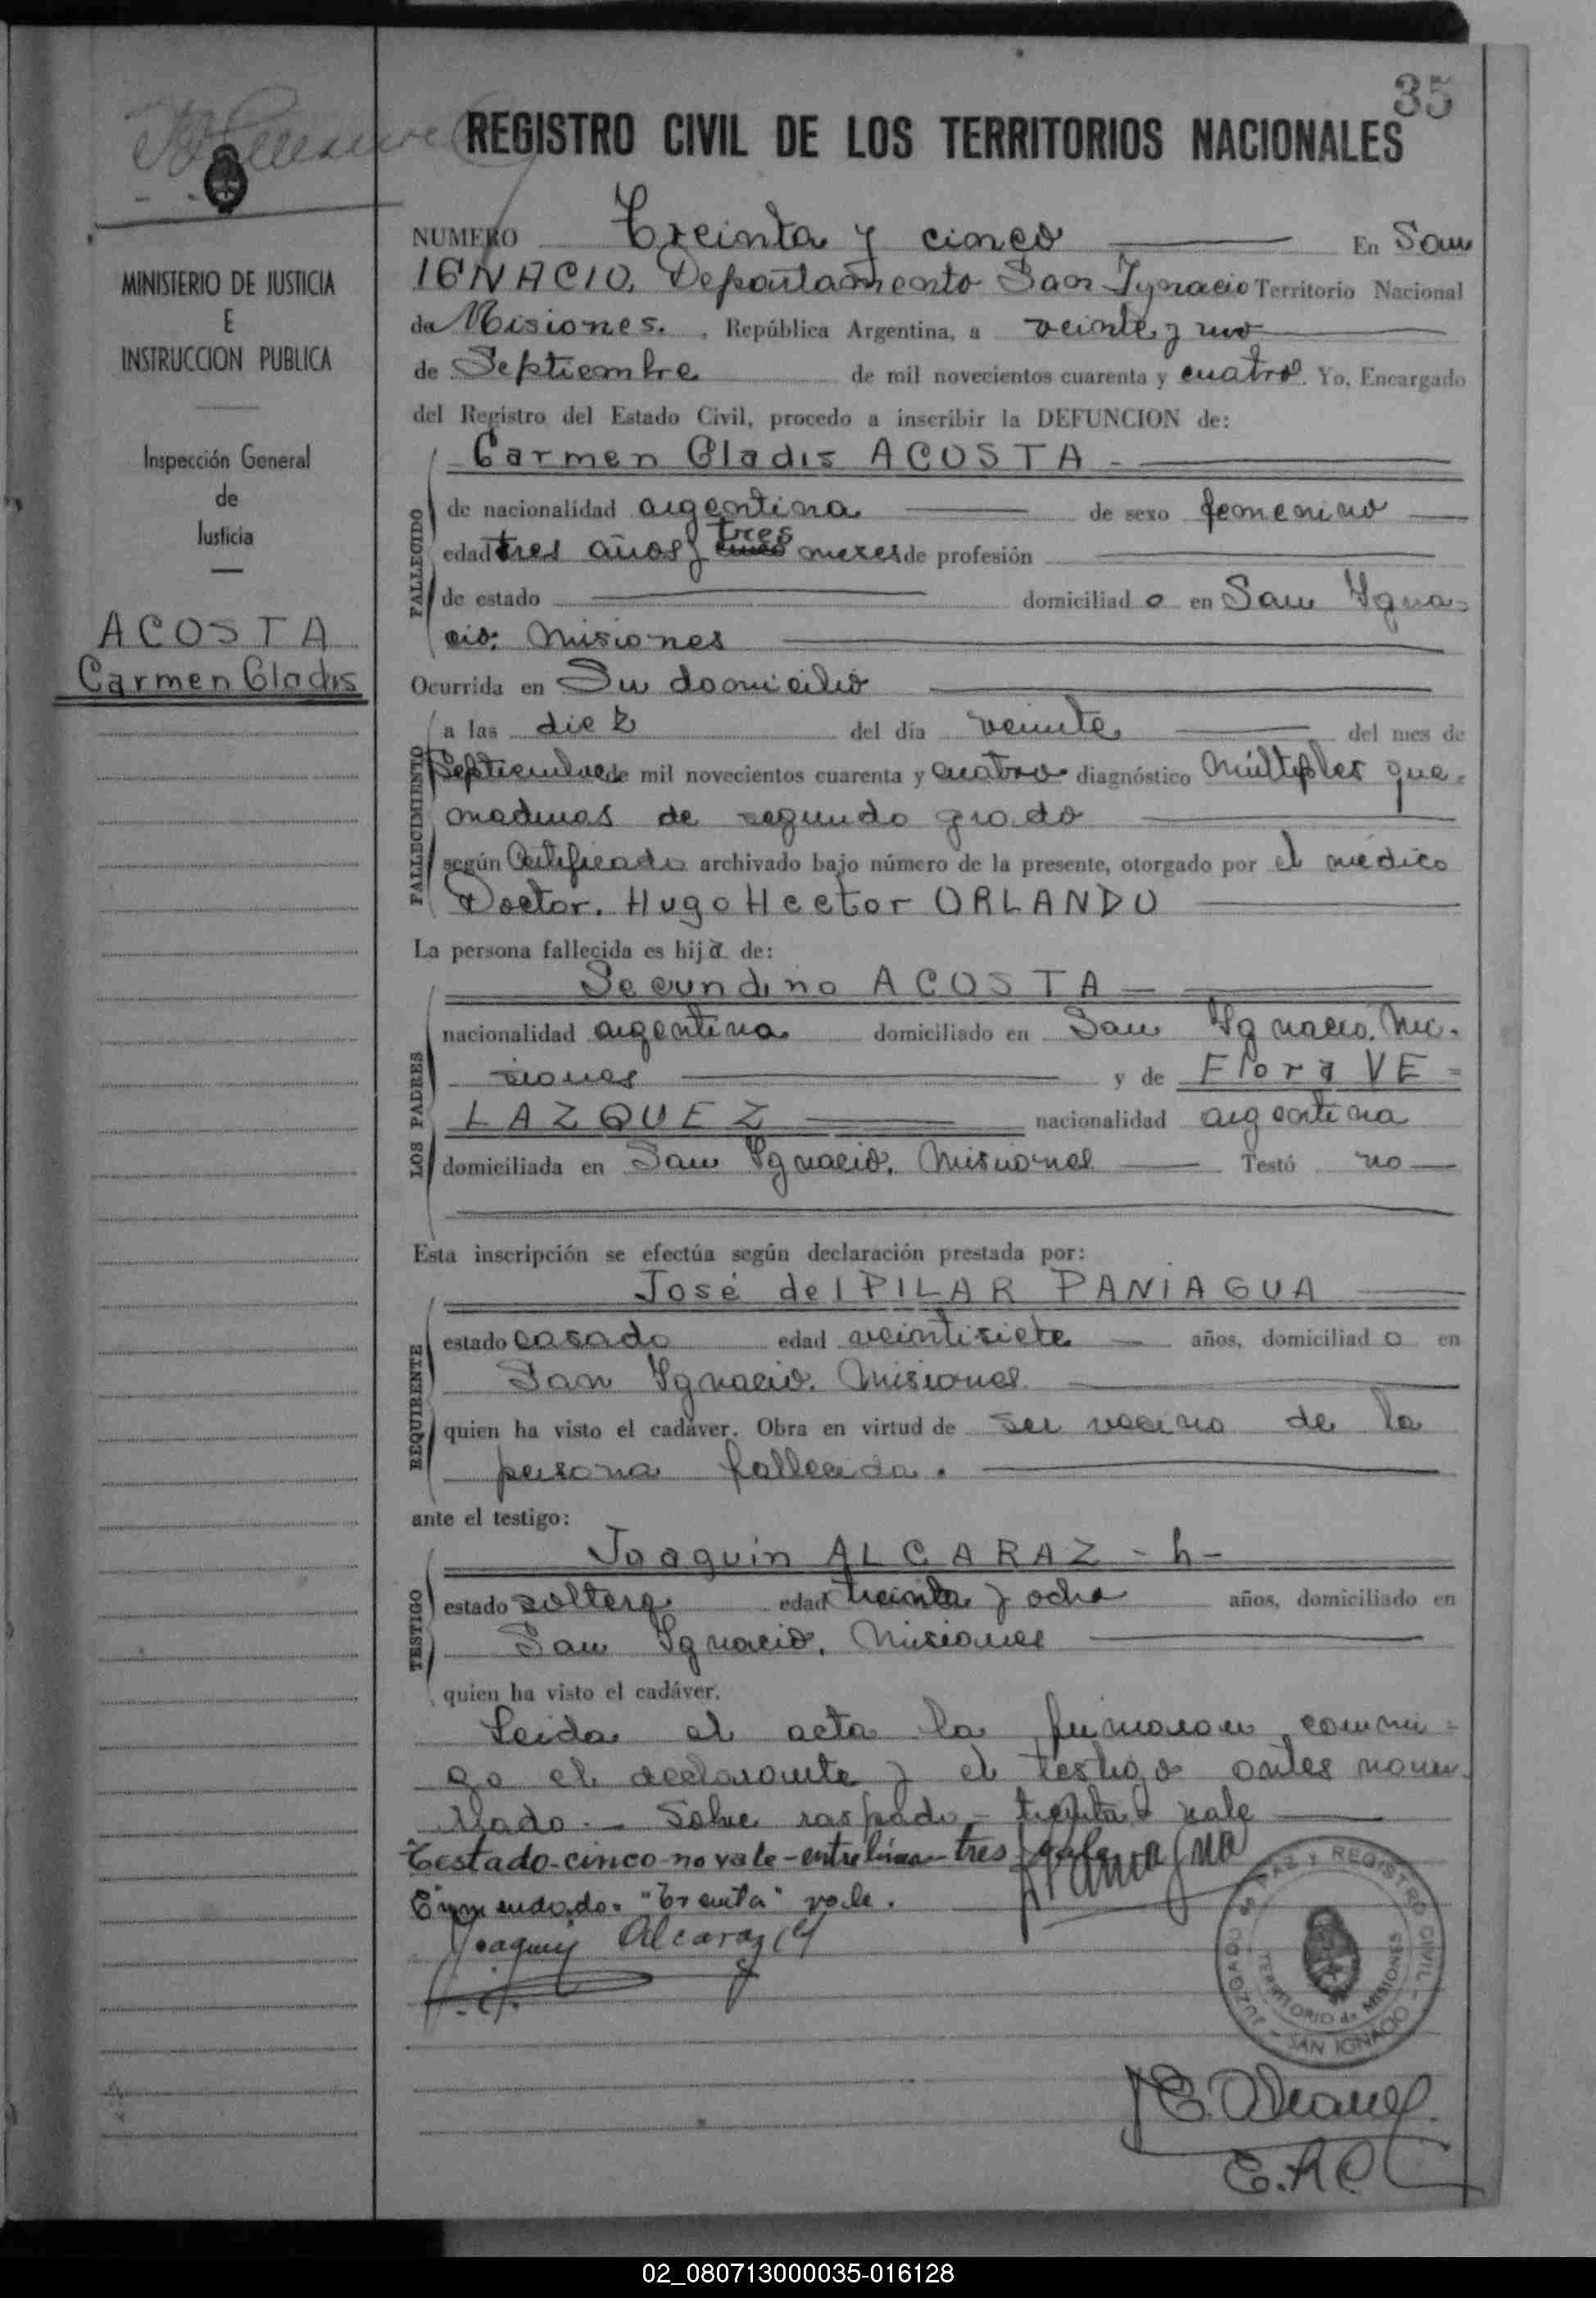 35
REGISTRO CIVIL DE LOS TERRITORIOS NACIONALES
MINISTERIO DE JUSTICIA
E
INSTRUCCION PUBLICA
Inspección General
de
Justicia
ACOSTA
Carmen Gladis
NUMERO Treinta y cinco En San
IGNACIO, Departamento San Ignacio Territorio Nacional
de Misiones. , República Argentina, a veinte y uno
de Septiembre de mil novecientos cuarenta y cuatro. Yo, Encargado
del Registro del Estado Civil, procedo a inscribir la DEFUNCION de:
Carmen Gladis ACOSTA -
FALLECIDO
de nacionalidad argentina de sexo femenino
tres
edad tres años y cinco meses de profesión
de estado domiciliad o en San Igna-
cio. Misiones
Ocurrida en Su domicilio
FALLECIMIENTO
a las diez del día veinte del mes de
Septiembre de mil novecientos cuarenta y cuatro diagnóstico Múltiples que-
maduras de segundo grado
según Certificado archivado bajo número de la presente, otorgado por el médico
Doctor. Hugo Hector ORLANDO
La persona fallecida es hija de:
Secundino ACOSTA -
LOS PADRES
nacionalidad argentina domiciliado en San Ignacio. Mi-
siones y de Flora VE=
LAZQUEZ nacionalidad argentina
domiciliada en San Ignacio. Misiones Testó no
Esta inscripción se efectúa según declaración prestada por:
José del PILAR PANIAGUA
REQUIRENTE
estado casado edad veintisiete años, domiciliad o en
San Ignacio. Misiones
quien ha visto el cadáver. Obra en virtud de ser vecino de la
persona fallecida.
ante el testigo:
Joaquin ALCARAZ - h -
TESTIGO
estado soltero edad treinta y ocho años, domiciliado en
San Ignacio. Misiones
quien ha visto el cadáver.
Leida el acta la firmaron conmi=
go el declarante y el testigo antes nom-
brado. - Sobre raspado - treinta vale
Testado-cinco no vale-entrelinea-tres vale
Enmendado. "Treinta" vale.
Paniagua
Joaquin Alcaraz (h)
JUZGADO de PAZ y REGISTRO CIVIL - SAN IGNACIO -
TERRITORIO de MISIONES
02_080713000035-016128